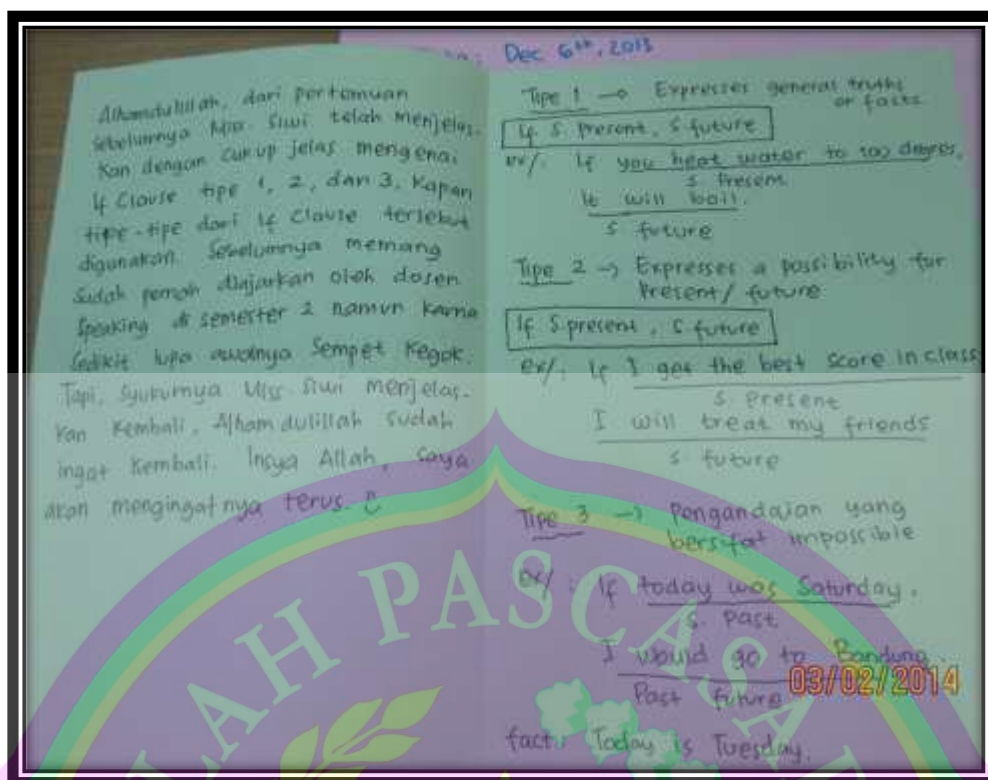 Dec 6th, 2013
Alhamdulillah, dari pertemuan
sebelumnya Miss Siwi telah menjelas-
kan dengan cukup jelas mengenai
If Clause tipe 1, 2, dan 3, Kapan
tipe-tipe dari If Clause tersebut
digunakan. Sebelumnya memang
sudah pernah diajarkan oleh dosen
Speaking di semester 2 namun karna
sedikit lupa awalnya sempet kegok.
Tapi, syukurnya Miss Siwi menjelas-
kan kembali. Alhamdulillah sudah
ingat kembali. Insya Allah, saya
akan mengingatnya terus.
Tipe 1 → Expresses general truths
or facts
If S. present, S. future
ex/: If you heat water to 100 degres,
S Present
It will boil.
S future
Tipe 2 → Expresses a possibility for
Present/ future
If S.present, S.future
ex/: If I get the best score in class
S Present
I will treat my friends
S future
Tipe 3 → Pengandaian yang
bersifat impossible
ex/: If today was Saturday,
S. Past
I would go to Bandung.
Past future
03/02/2014
fact: Today is Tuesday.
LAH PASCASA